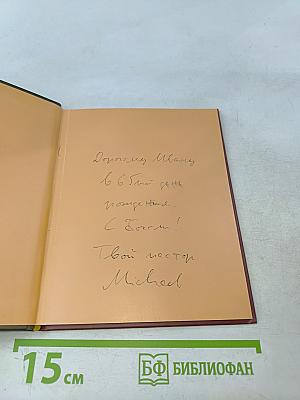 Дорогому Ивану
в 65тый день
рождения.
С Богом!
Твой пастор
Michael
15 см
БФ БИБЛИОФАН